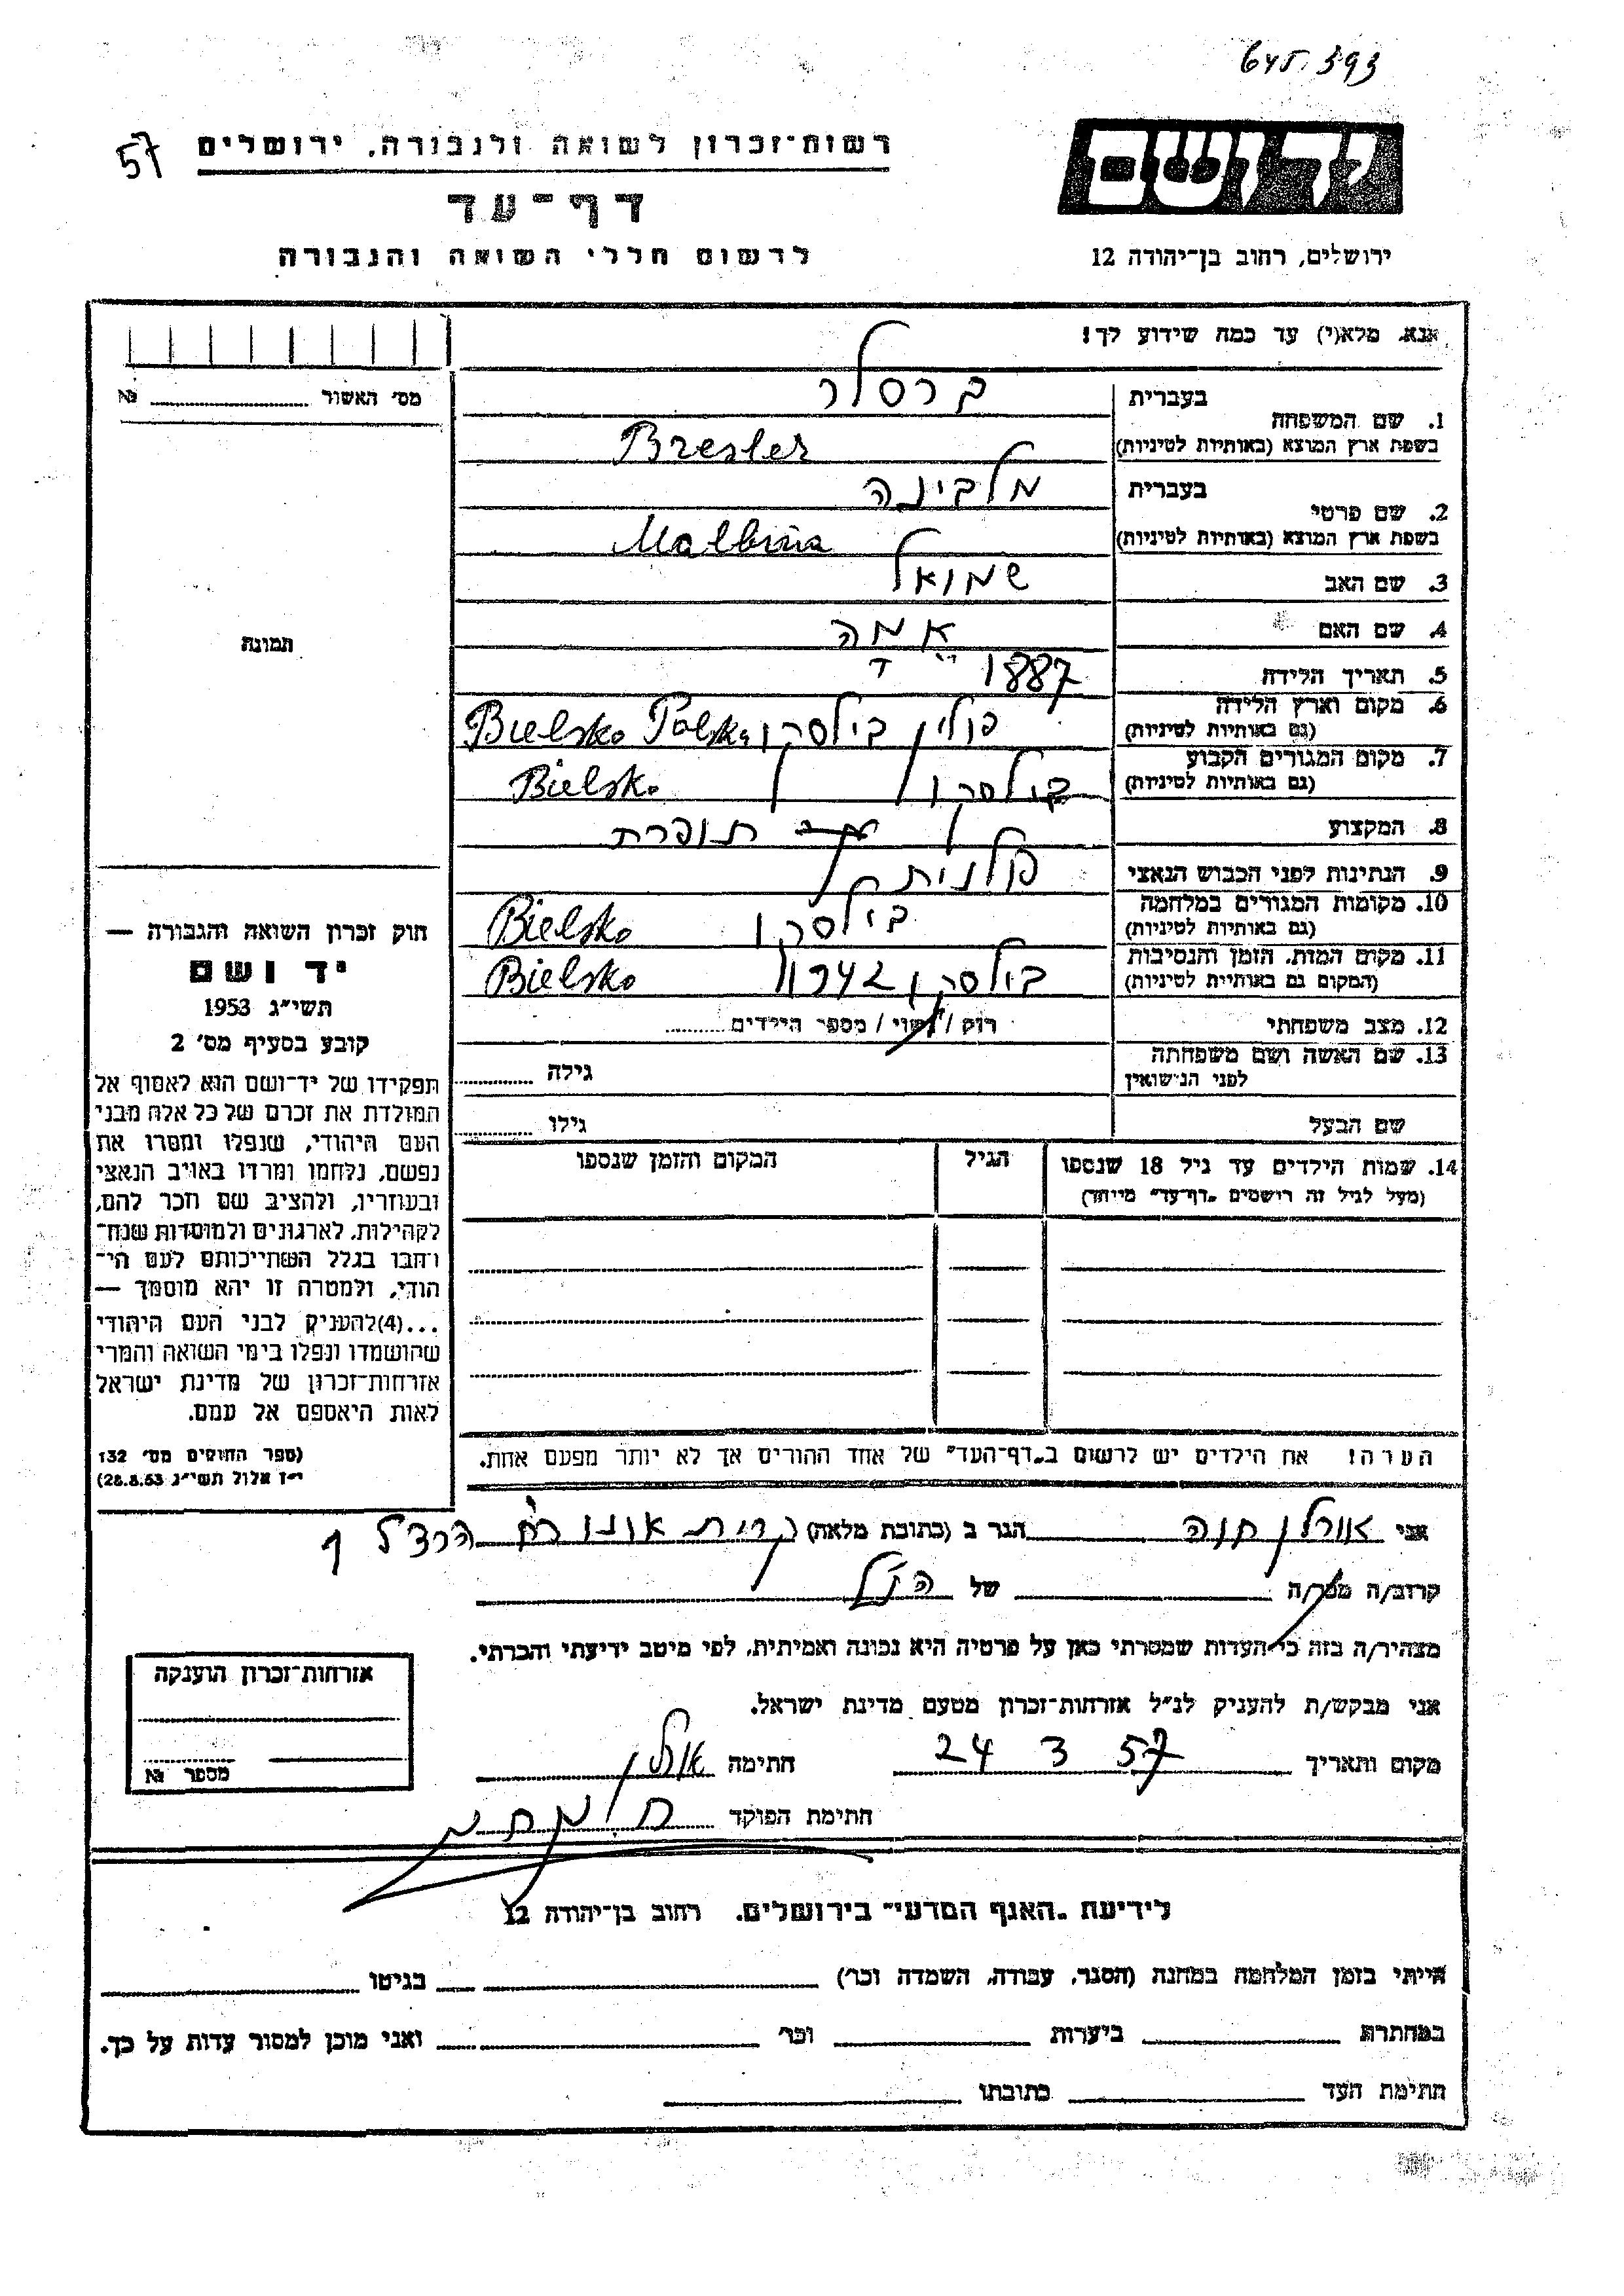 645.393
57
יד ושם
רשות־זכרון לשואה ולגבורה, ירושלים
דף־עד
ירושלים, רחוב בן־יהודה 12
לרשום חללי השואה והגבורה
אנא, מלא(י) עד כמה שידוע לך!
מס' האשור № 
1. שם המשפחה
בעברית ברסלר
בשפת ארץ המוצא (באותיות לטיניות) Bresler
2. שם פרטי
בעברית מלבינה
בשפת ארץ המוצא (באותיות לטיניות) Malbina
3. שם האב שמואל
4. שם האם
5. תאריך הלידה 1887
6. מקום וארץ הלידה פולין בילסקו Bielsko Polska
(גם באותיות לטיניות)
7. מקום המגורים הקבוע בילסקו Bielsko
(גם באותיות לטיניות)
8. המקצוע תופרת
9. הנתינות לפני הכבוש הנאצי פולנית
10. מקומות המגורים במלחמה בילסקו Bielsko
(גם באותיות לטיניות)
11. מקום המות, הזמן והנסיבות בילסקו 1942 Bielsko
(המקום גם באותיות לטיניות)
12. מצב משפחתי רוק / נשוי / מספר הילדים
13. שם האשה ושם משפחתה גילה
לפני הנישואין
שם הבעל גילו
14. שמות הילדים עד גיל 18 שנספו הגיל המקום והזמן שנספו
(מעל לגיל זה רושמים "דף־עד" מיוחד)
הערה! את הילדים יש לרשום ב"דף־העד" של אחד ההורים אך לא יותר מפעם אחת.
תמונה
חוק זכרון השואה והגבורה —
יד ושם
תשי"ג 1953
קובע בסעיף מס' 2
תפקידו של יד־ושם הוא לאסוף אל
המולדת את זכרם של כל אלה מבני
העם היהודי, שנפלו ומסרו את
נפשם, נלחמו ומרדו באויב הנאצי
ובעוזריו, ולהציב שם וזכר להם,
לקהילות, לארגונים ולמוסדות שנח־
רבו בגלל השתייכותם לעם הי־
הודי, ולמטרה זו יהא מוסמך —
...(4)להעניק לבני העם היהודי
שהושמדו ונפלו בימי השואה והמרי
אזרחות־זכרון של מדינת ישראל
לאות היאספם אל עמם.
(ספר החוקים מס' 132
י"ז אלול תשי"ג 28.8.53)
אני חנה הגר ב (כתובת מלאה) קרית אונו רח הרצל
קרוב/ה מכר/ה של הנ"ל
מצהיר/ה בזה כי העדות שמסרתי כאן על פרטיה היא נכונה ואמיתית, לפי מיטב ידיעתי והכרתי.
אני מבקש/ת להעניק לנ"ל אזרחות־זכרון מטעם מדינת ישראל.
מקום ותאריך 24 3 57 חתימה
חתימת הפוקד
אזרחות־זכרון הוענקה
מספר №
לידיעת "האגף המדעי" בירושלים, רחוב בן־יהודה 12
הייתי בזמן המלחמה במחנה (הסגר, עבודה, השמדה וכר') בגיטו
במחתרת ביערות וכר' ואני מוכן למסור עדות על כך.
חתימת העד כתובתו